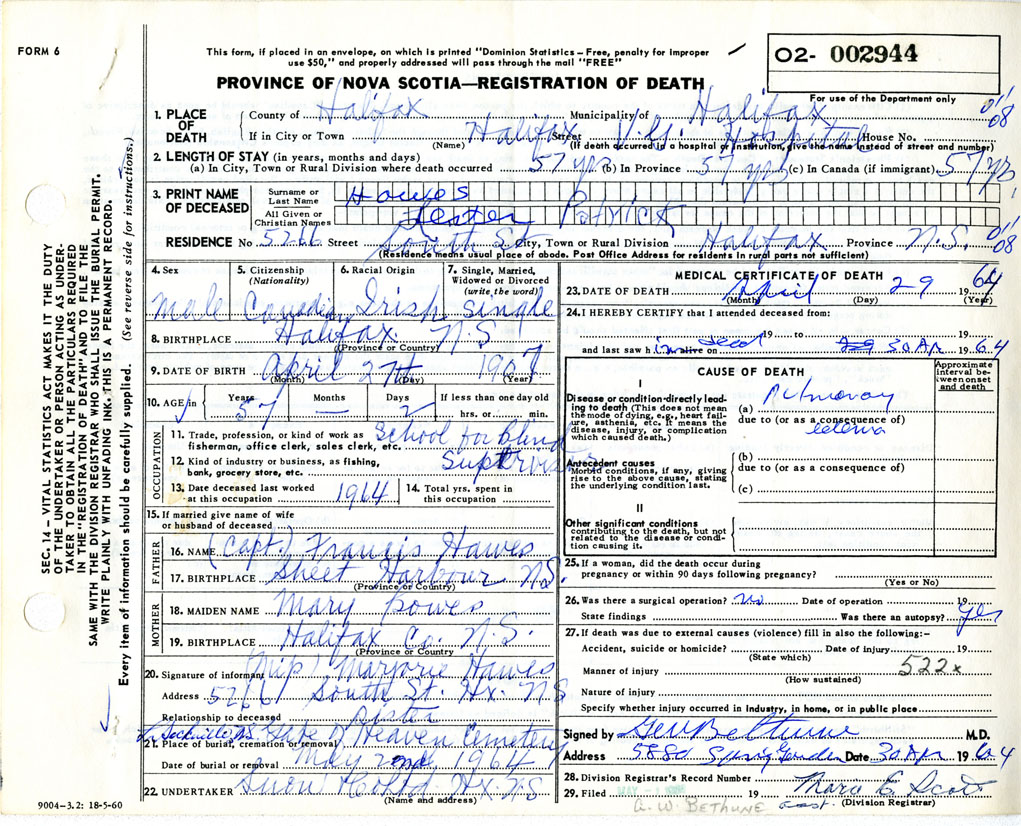 FORM 6
This form, if placed in an envelope, on which is printed "Dominion Statistics – Free, penalty for improper
use $50," and properly addressed will pass through the mail "FREE"
PROVINCE OF NOVA SCOTIA—REGISTRATION OF DEATH
O2- 002944
For use of the Department only
1. PLACE OF DEATH
County of Halifax Municipality of Halifax
If in City or Town Halifax Street V.G. Hospital House No.
(Name) (If death occurred in a hospital or institution, give the name instead of street and number)
011 08
2. LENGTH OF STAY (in years, months and days)
(a) In City, Town or Rural Division where death occurred 57 yrs (b) In Province 57 yrs (c) In Canada (if immigrant) 57 yrs
3. PRINT NAME OF DECEASED
Surname or Last Name Hawes
All Given or Christian Names Lester Patrick
RESIDENCE No. 5266 Street South St. City, Town or Rural Division Halifax Province N.S. 011 08
(Residence means usual place of abode. Post Office Address for residents in rural parts not sufficient)
4. Sex Male
5. Citizenship (Nationality) Canadian
6. Racial Origin Irish
7. Single, Married, Widowed or Divorced (write the word) Single
8. BIRTHPLACE Halifax N S
(Province or Country)
9. DATE OF BIRTH April 27th 1907
(Month) (Day) (Year)
10. AGE in Years 57 Months — Days 2 If less than one day old hrs. or min.
OCCUPATION
11. Trade, profession, or kind of work as fisherman, office clerk, sales clerk, etc. School for Blind
12. Kind of industry or business, as fishing, bank, grocery store, etc. Supervisor
13. Date deceased last worked at this occupation 1964
14. Total yrs. spent in this occupation
15. If married give name of wife or husband of deceased
FATHER
16. NAME (Capt.) Francis Hawes
17. BIRTHPLACE Sheet Harbour N.S.
(Province or Country)
MOTHER
18. MAIDEN NAME Mary Power
19. BIRTHPLACE Halifax Co. N.S.
(Province or Country)
20. Signature of informant Marjorie Hawes
Address 5266 South St. Hx. N S
Relationship to deceased Sister
21. Place of burial, cremation or removal Sackville N.S. Gate of Heaven Cemetery
Date of burial or removal May 2nd 1964
22. UNDERTAKER Snow Hx N S
(Name and address)
MEDICAL CERTIFICATE OF DEATH
23. DATE OF DEATH April 29 1964
(Month) (Day) (Year)
24. I HEREBY CERTIFY that I attended deceased from:
19 to 19
and last saw him alive on dead 30 Apr 1964
CAUSE OF DEATH
Approximate interval between onset and death
I
Disease or condition directly leading to death (This does not mean the mode of dying, e.g., heart failure, asthenia, etc. It means the disease, injury, or complication which caused death.)
(a) Pulmonary
due to (or as a consequence of)
edema
Antecedent causes
Morbid conditions, if any, giving rise to the above cause, stating the underlying condition last.
(b)
due to (or as a consequence of)
(c)
II
Other significant conditions
contributing to the death, but not related to the disease or condition causing it.
25. If a woman, did the death occur during pregnancy or within 90 days following pregnancy?
(Yes or No)
26. Was there a surgical operation? No Date of operation 19
State findings Was there an autopsy? Yes
27. If death was due to external causes (violence) fill in also the following:–
Accident, suicide or homicide? Date of injury 19
(State which)
Manner of injury 522x
(How sustained)
Nature of injury
Specify whether injury occurred in industry, in home, or in public place
Signed by G W Bethune M.D.
Address 5880 Spring Garden Date 30 Apr 1964
28. Division Registrar's Record Number
29. Filed MAY - 1 19 Marg E. Scott
(Division Registrar)
G. W. BETHUNE asst.
SEC. 14 – VITAL STATISTICS ACT MAKES IT THE DUTY
OF THE UNDERTAKER OR PERSON ACTING AS UNDER-
TAKER TO OBTAIN ALL THE PARTICULARS REQUIRED
IN THE "REGISTRATION OF DEATH" AND TO FILE THE
SAME WITH THE DIVISION REGISTRAR WHO SHALL ISSUE THE BURIAL PERMIT.
WRITE PLAINLY WITH UNFADING INK. THIS IS A PERMANENT RECORD.
Every item of information should be carefully supplied. (See reverse side for instructions.)
9004–3.2: 18-5-60